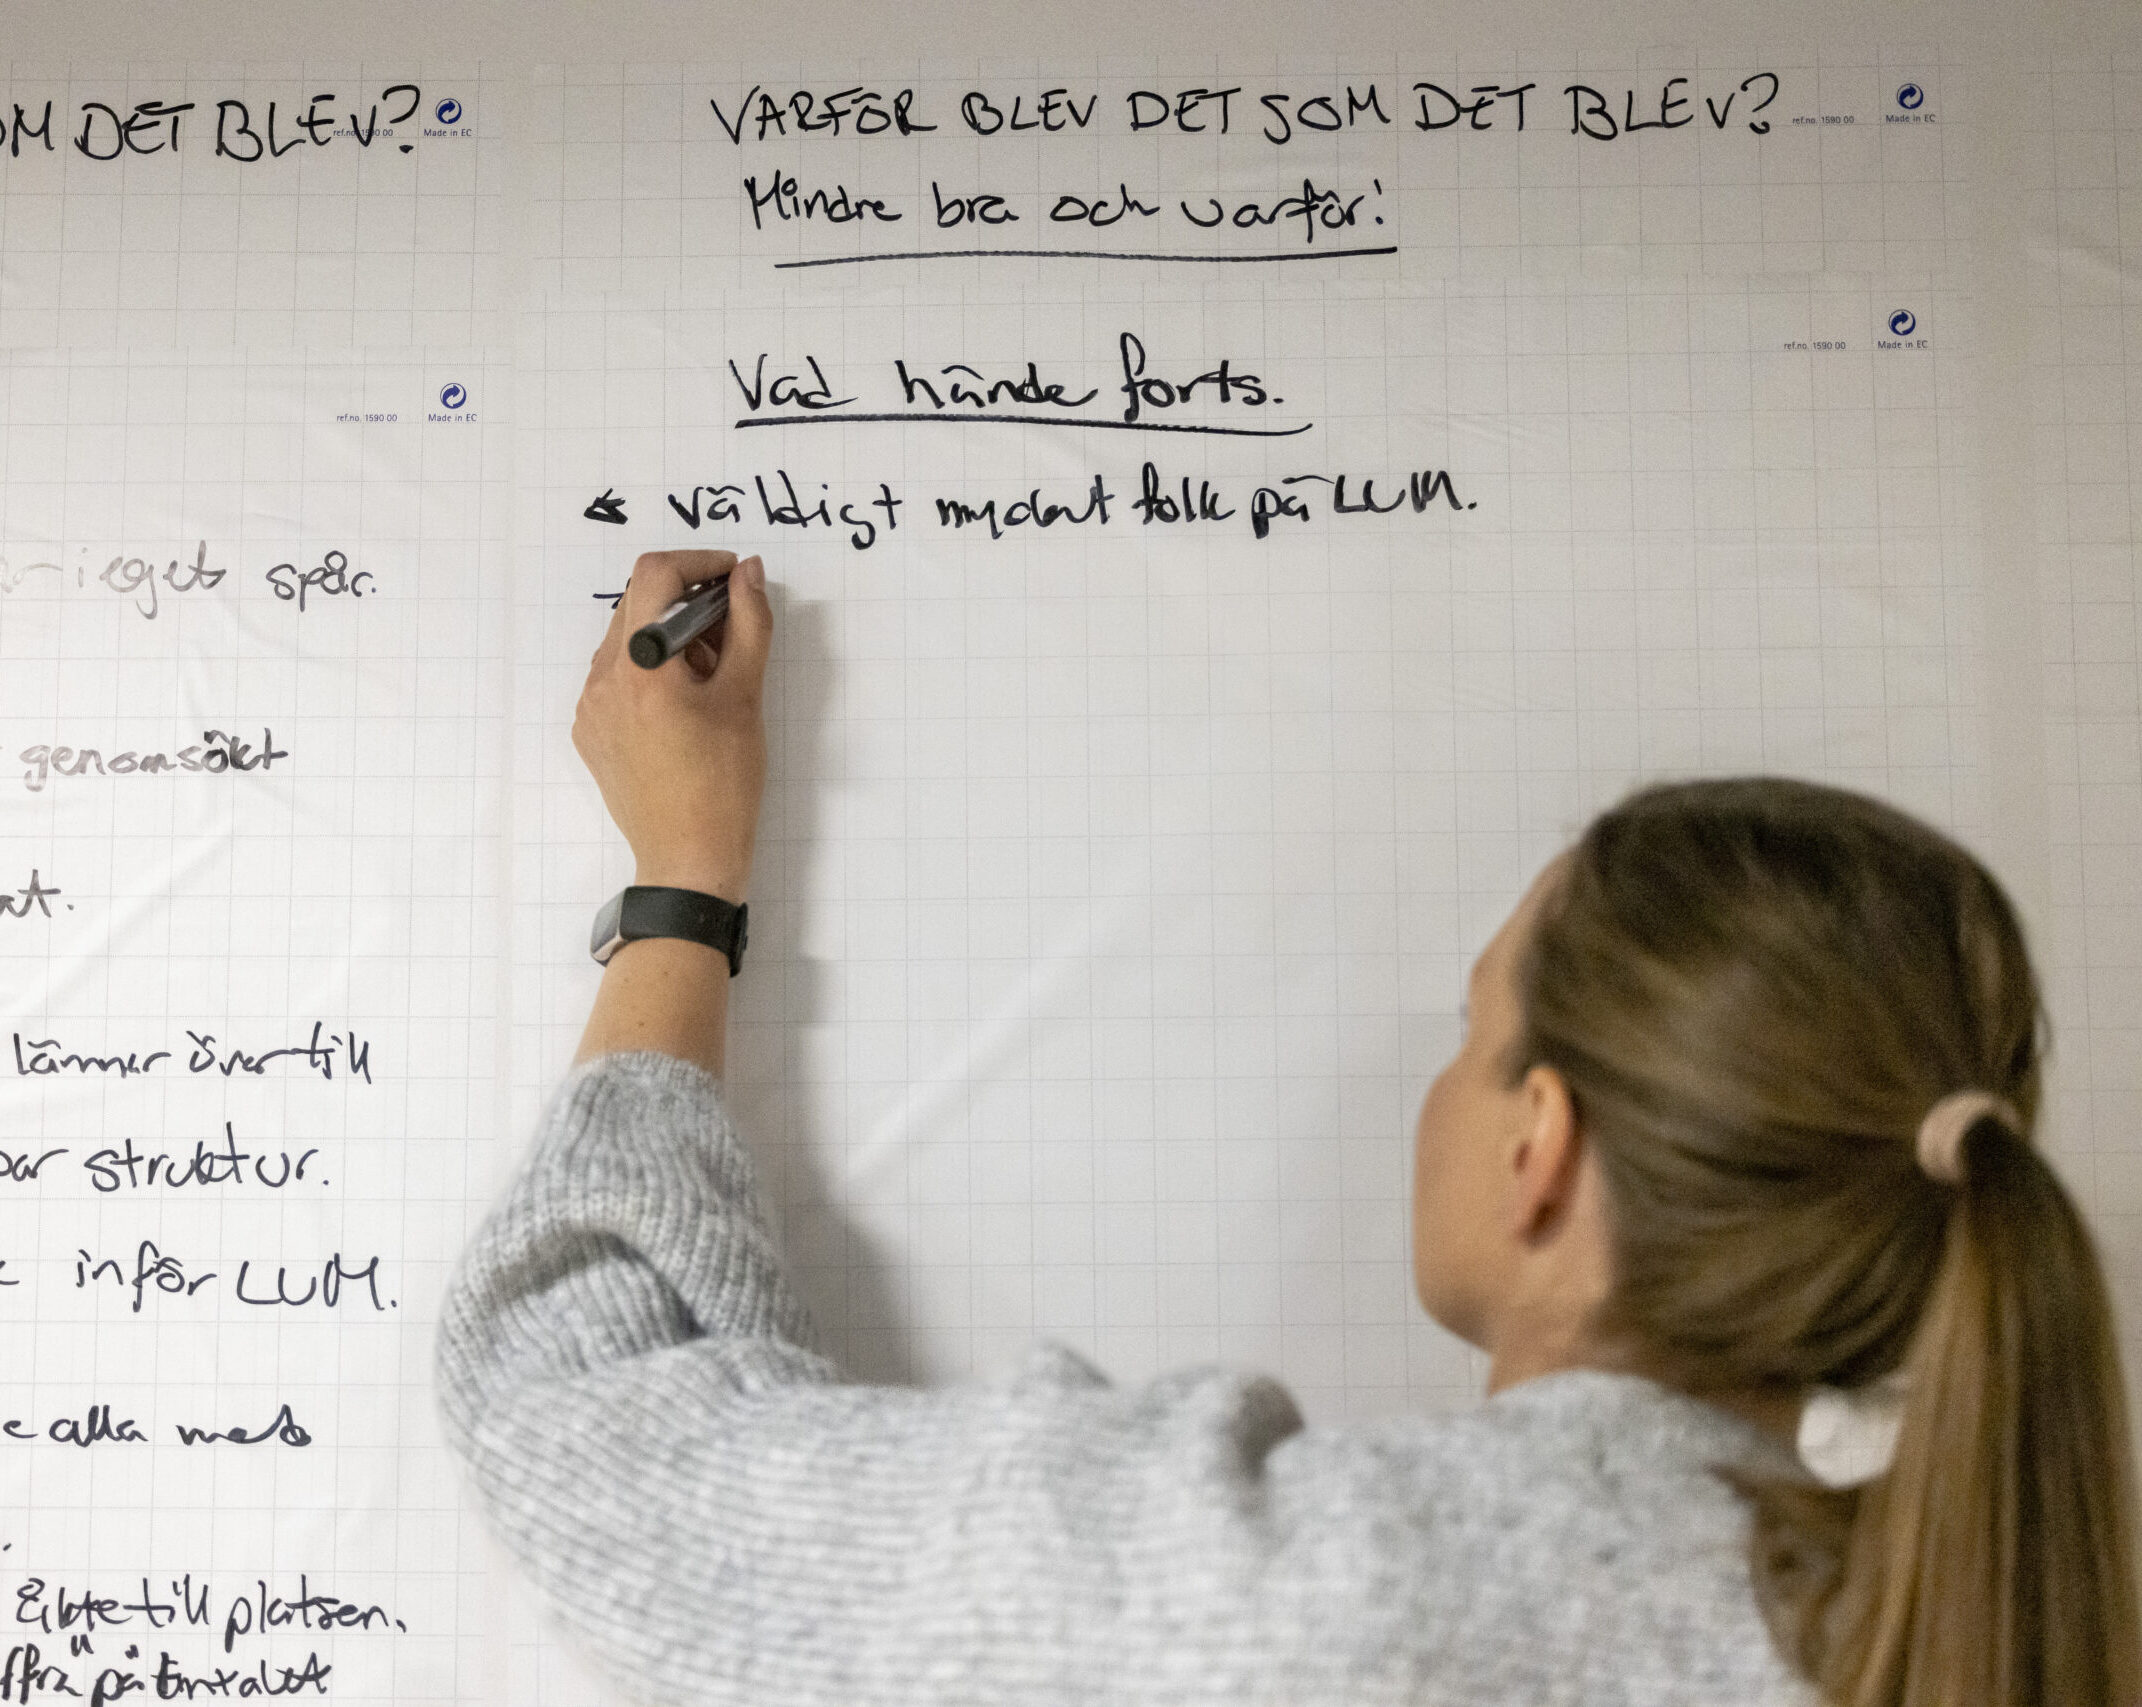 OM DET BLEV?
ref.no. 1590 00 Made in EC
ref.no. 1590 00 Made in EC
i eget spår.
genomsökt
lämnar över till
struktur.
inför LUM.
alla med
åkte till platsen.
VARFÖR BLEV DET SOM DET BLEV?
ref.no. 1590 00 Made in EC
Mindre bra och varför!
ref.no. 1590 00 Made in EC
Vad hände forts.
väldigt mycket folk på LUM.